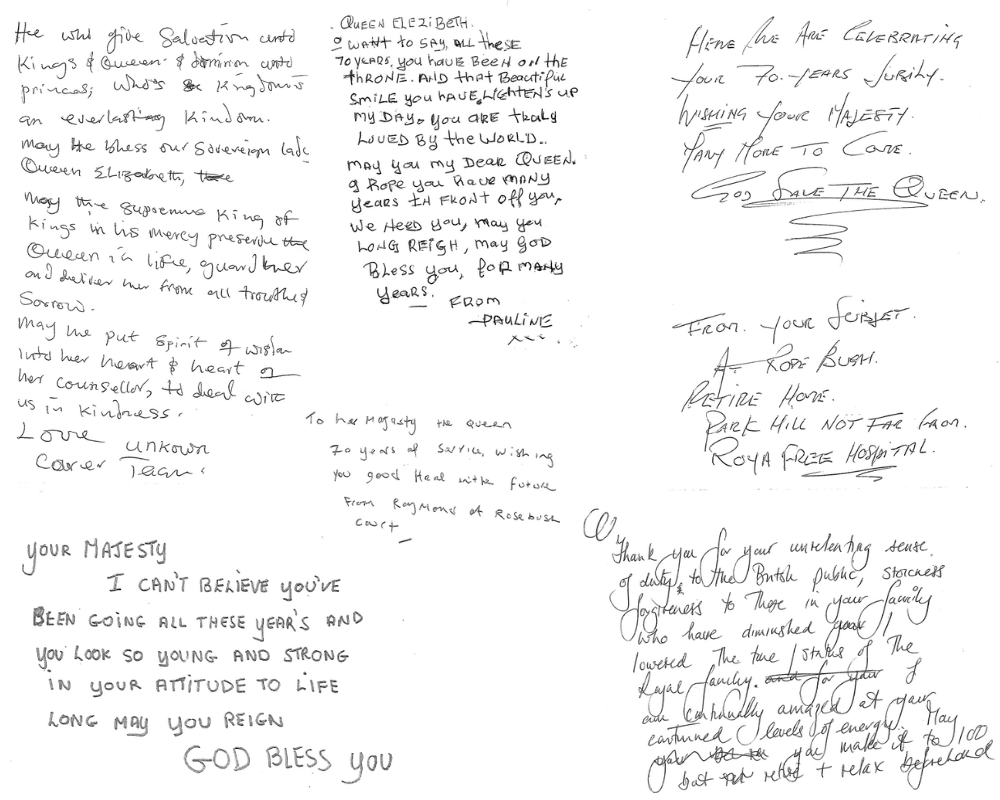 He who give Salvation unto
Kings & Queen & dominion unto
princes; who's Kingdom's
an everlasting Kindom.
may He bless our Sovereign lady
Queen Elizabeth,
may the supreme King of
Kings in his mercy preserve the
Queen in life, guard her
and deliver her from all trouble &
Sorrow.
May He put Spirit of wisdom
into her heart & heart of
her counsellor, to deal with
us in kindness.
Love unkown
Carer Team.
QUEEN ELEZIBETH.
I WANT to SAY, ALL these
70 YEARS, you have BEEN ON the
thRONE. AND that Beautiful
SMILE you HAVE, LIGHTEN'S UP
MY DAY, you ARE tRuly
LOVED BY the WORLD..
MAY you MY DEAR QUEEN.
I HOPE you HAVE MANY
YEARS IN FRONT OFF you,
WE NEED you, may you
LONG REIGH, may GOD
BLess you, foR MANy
YEARS.
FROM
PAULINE
x x x .
To her Majesty the Queen
70 years of Service, wishing
you good Heal with future
From Raymond of Rosebush
Court
HERE WE ARE CELEBRATING
YOUR 70-YEARS JUBILY.
WISHING YOUR MAJESTY.
MANY MORE TO COME.
GOD SAVE THE QUEEN.
FROM. YOUR SUBJET.
A- ROSE BUSH.
RETIRE HOME.
PARK HILL NOT FAR FROM.
ROYA FREE HOSPITAL.
YOUR MAJESTY
I CAN'T BELIEVE YOU'VE
BEEN GOING ALL THESE YEAR'S AND
YOU LOOK SO YOUNG AND STRONG
IN YOUR ATTITUDE TO LIFE
LONG MAY YOU REIGN
GOD BLESS YOU
Thank you for your unrelenting sense
of duty to the British public, stoicness
forgiveness to those in your family
who have diminished /
lowered The true status of The
Royal family. and for your I
am continually amazed at your
continued levels of energy. May
you make it to 100
but retire + relax beforehand